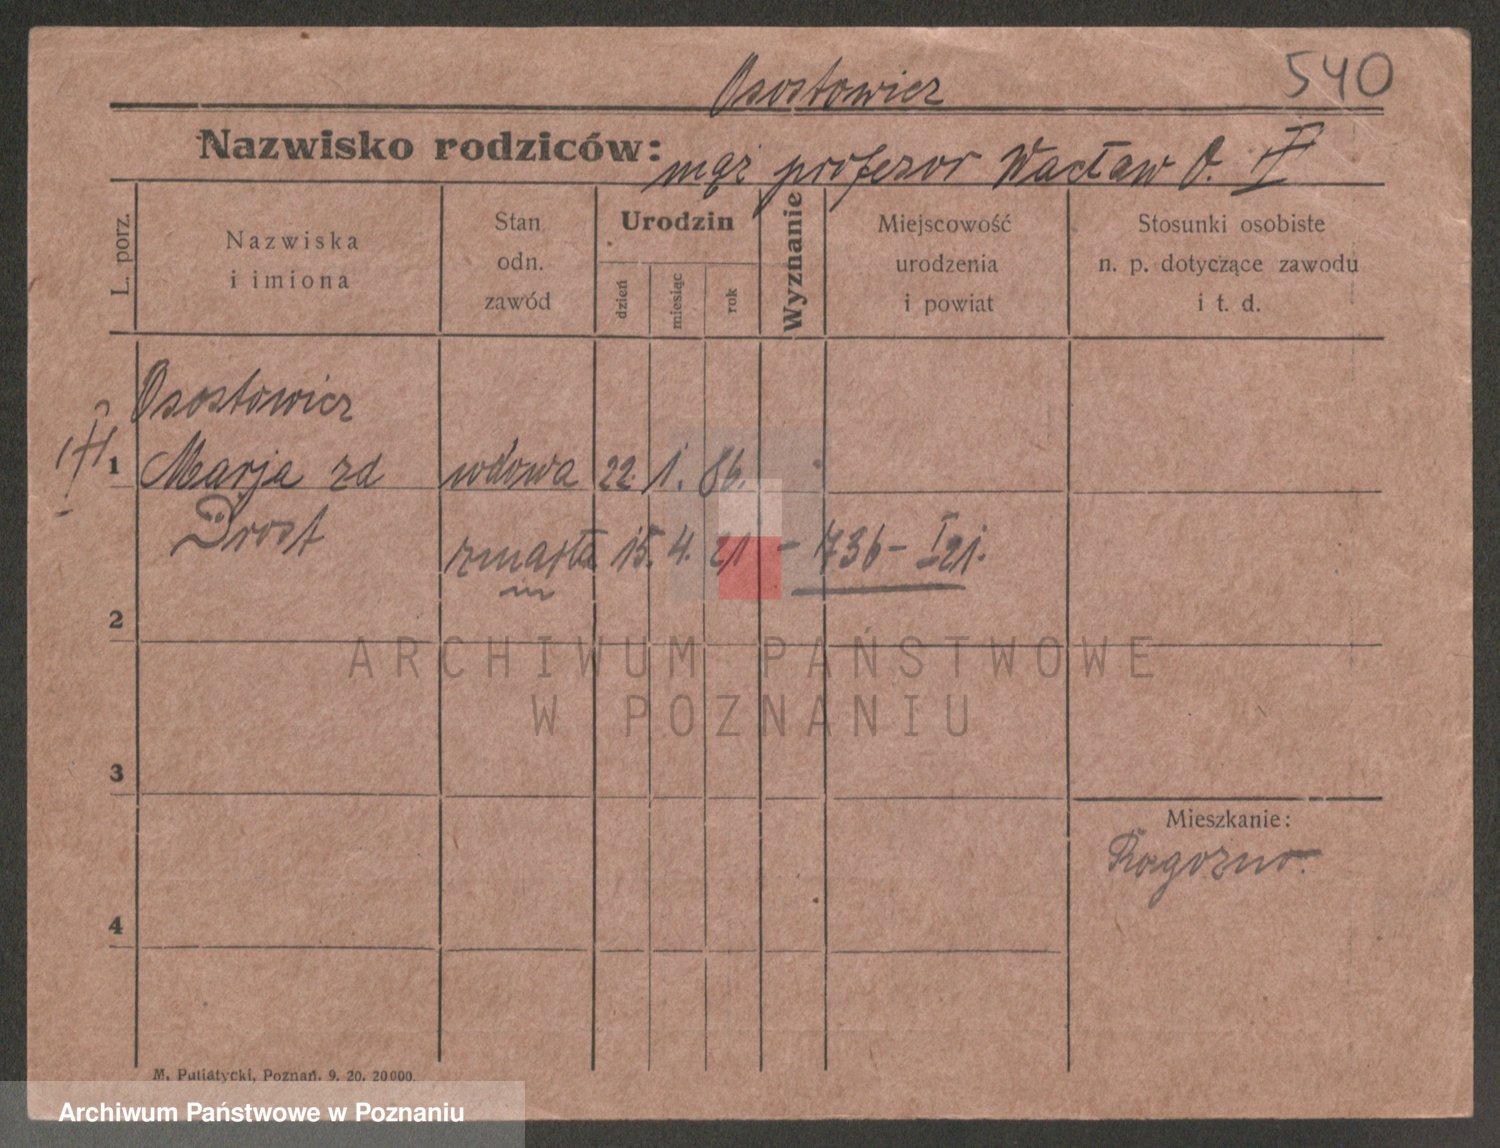 Osostowicz
540
Nazwisko rodziców: mąż profesor Wacław O. II
L. porz.
Nazwiska
i imiona
Stan
odn.
zawód
Urodzin
dzień
miesiąc
rok
Wyznanie
Miejscowość
urodzenia
i powiat
Stosunki osobiste
n. p. dotyczące zawodu
i t. d.
Osostowicz
1 Marja zd wdowa 22. 1. 86.
Drost
zmarła 15. 4. 21 – 736 – I 21.
2
ARCHIWUM PAŃSTWOWE
W POZNANIU
3
Mieszkanie:
Rogozno.
4
M. Putiatycki, Poznań. 9. 20. 20000.
Archiwum Państwowe w Poznaniu